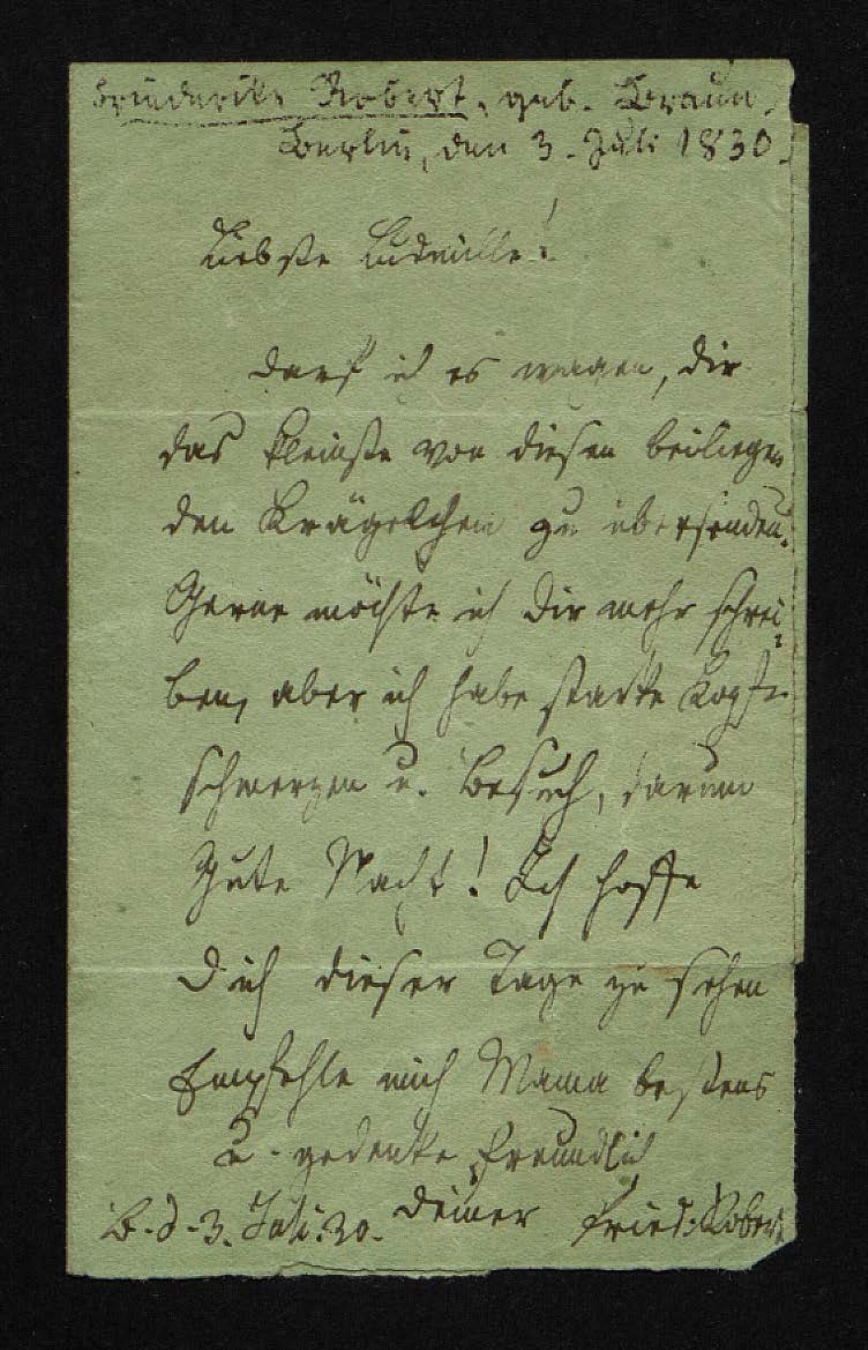 Friederike Robert, geb. Braun,
Berlin, den 3. Juli 1830.
Liebste Ludmille!
Darf ich es wagen, dir
das kleinste von diesen beiliegen
den Krägelchen zu übersenden.
Gerne möchte ich Dir mehr schrei:
ben, aber ich habe starke Kopf-
schmerzen u. Besuch, darum
Gute Nacht! Ich hoffe
Dich dieser Tage zu sehen
Empfehle mich Mama bestens
u. gedenke freundlich
B. d. 3. Juli. 30. deiner Fried: Robert